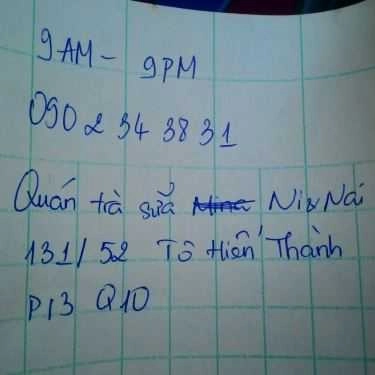 9AM - 9PM
090 2 34 38 31
Quán trà sữa Ni&Nái
131/52 Tô Hiến Thành
P13 Q10